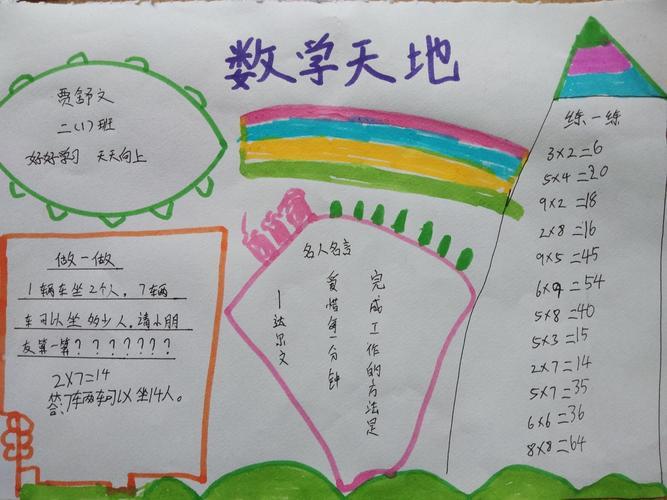 数学天地
贾舒文
二(1)班
好好学习 天天向上
做一做
1辆车坐2人,7辆
车可以坐多少人,请小朋
友算一算???????
2×7=14
答:7车两车可以坐14人。
名人名言
完成工作的方法是
爱惜每一分钟
—达尔文
练一练
3×2=6
5×4=20
9×2=18
2×8=16
9×5=45
6×9=54
5×8=40
5×3=15
2×7=14
5×7=35
6×6=36
8×8=64